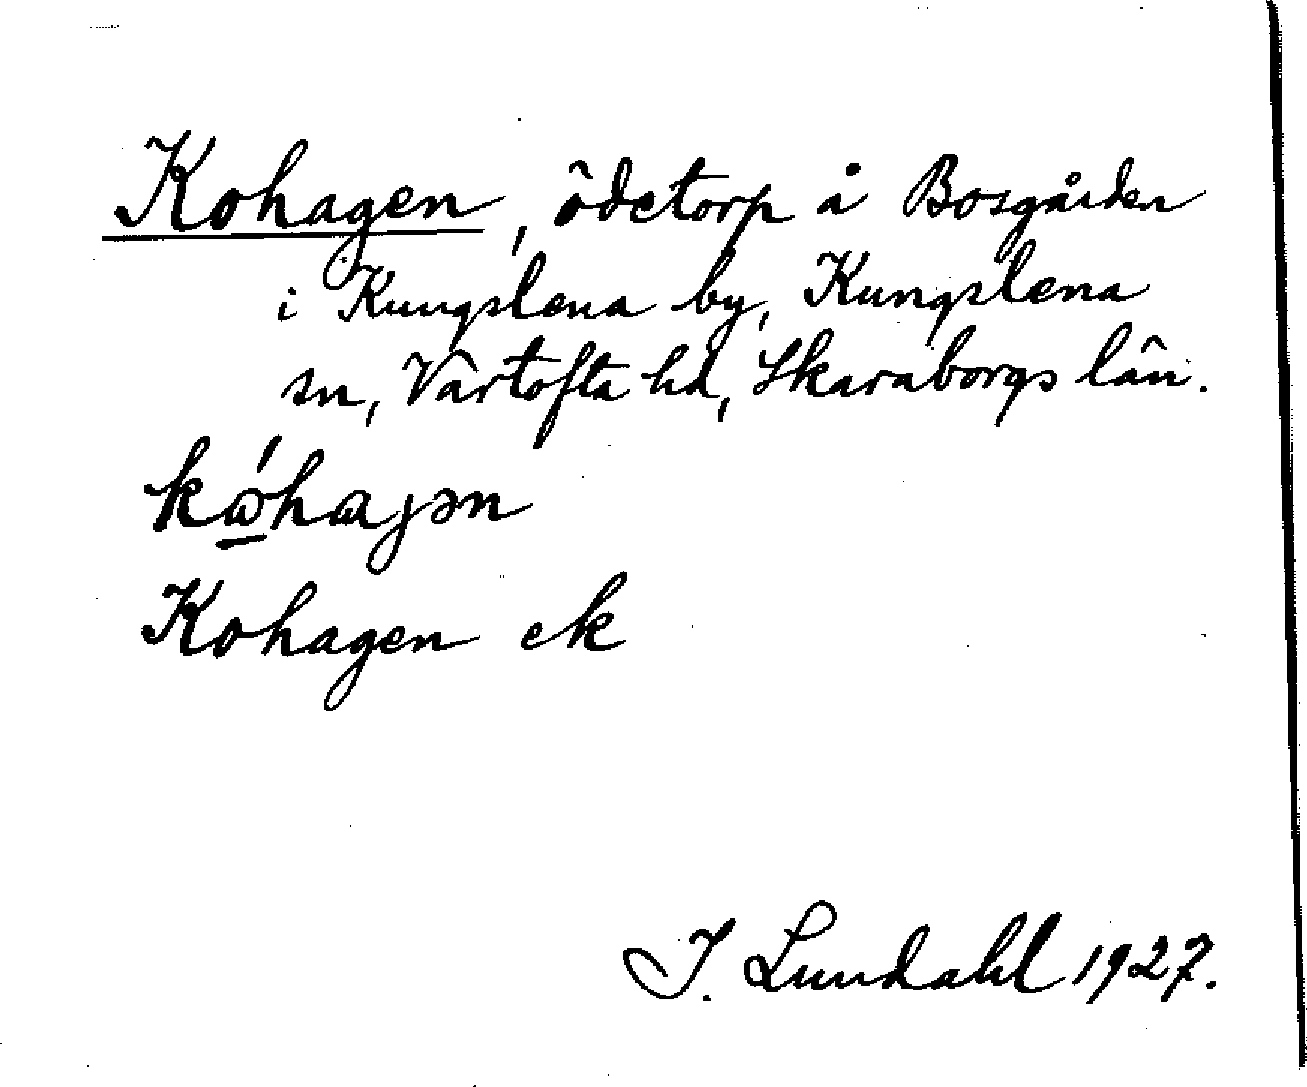 Kohagen, ödetorp å Bosgården
i Kungslena by, Kungslena
sn, Vartofta hd, Skaraborgs län.
kώ̲hɑjən
Kohagen ek
I. Lundahl 1927.